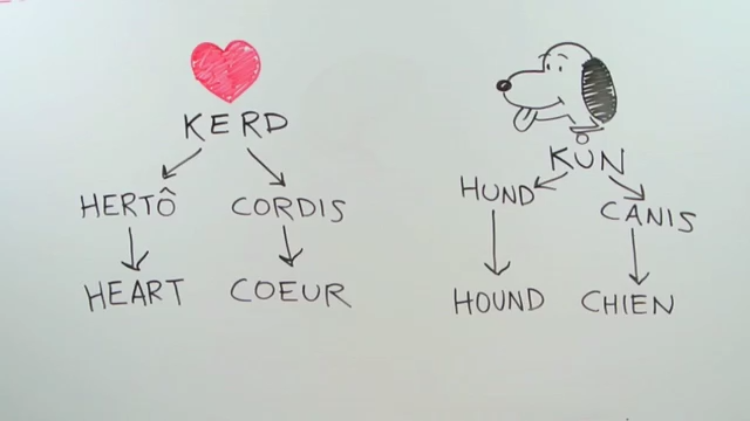 KERD
HERTÔ CORDIS
HEART COEUR
KUN
HUND CANIS
HOUND CHIEN